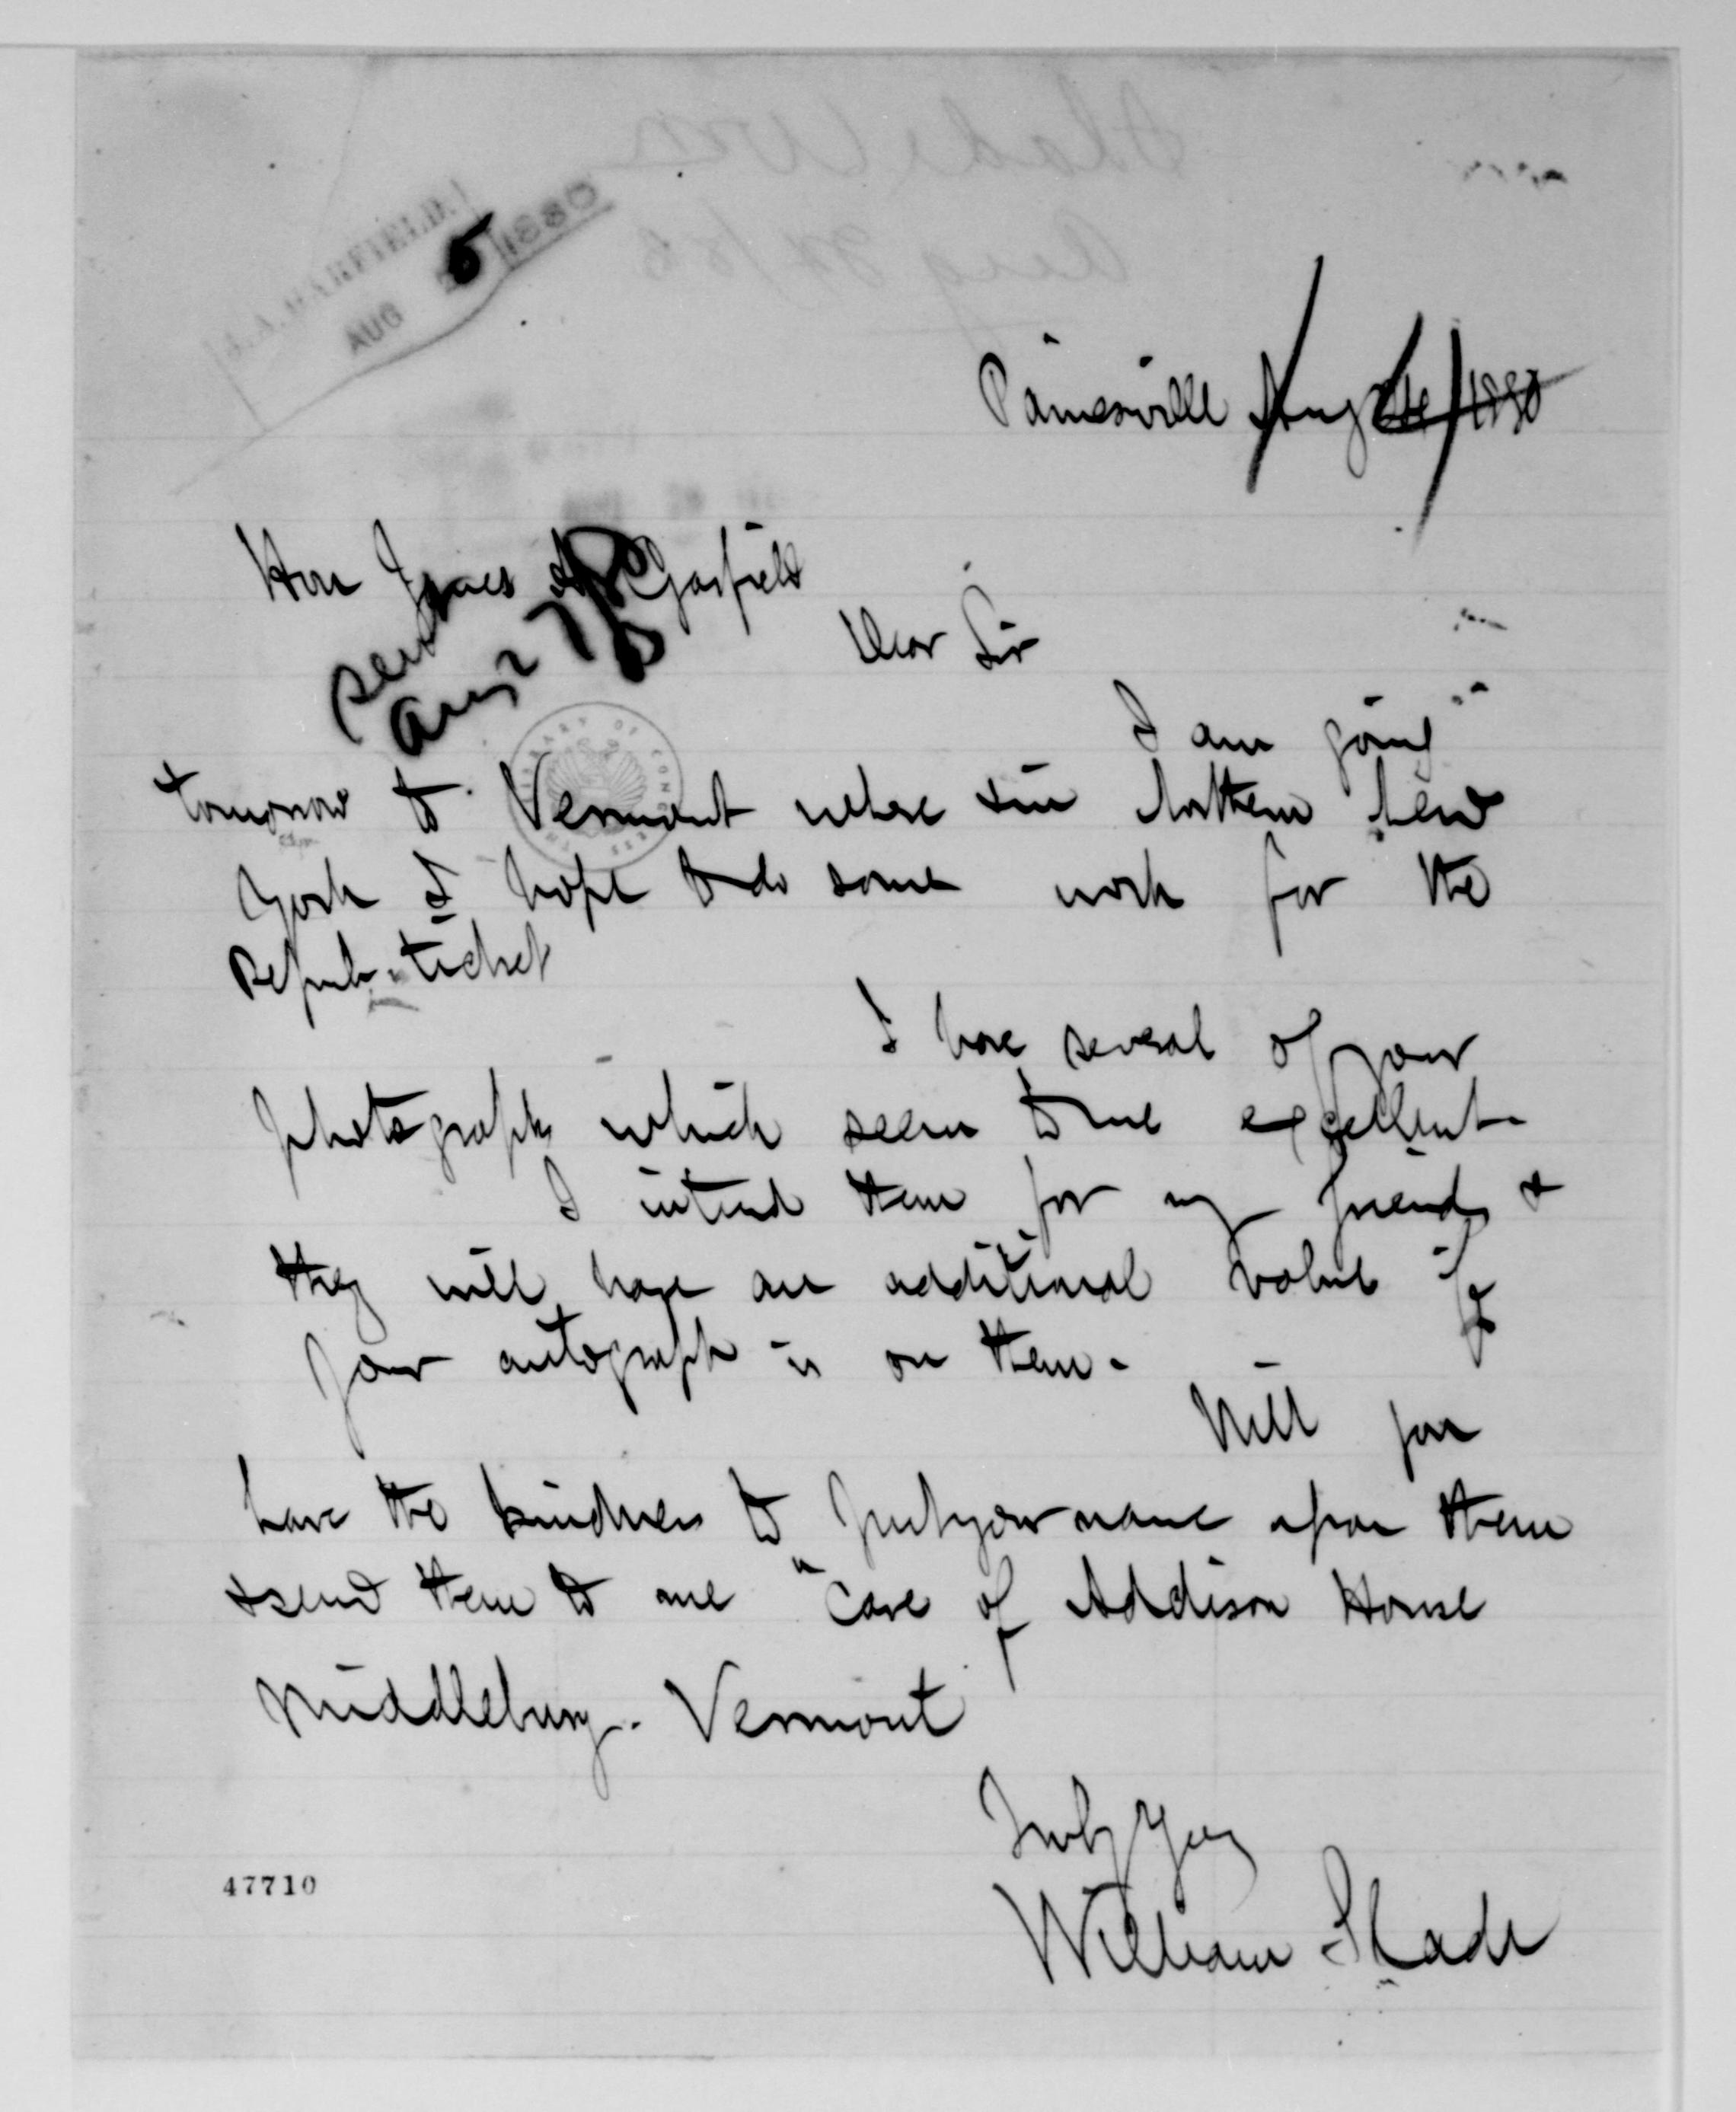 J. A. GARFIELD.
AUG 25 1880
Painesville Aug 24/1880
Hon James A Garfield
Sent
Aug 27/80
Dear Sir
I am going
tomorrow to Vermont where & in Northern New
York I hope to do some work for the
Repub. ticket
I have several of your
photographs which seem to me excellent.
I intend them for my friends &
they will have an additional value if
your autograph is on them.
Will you
have the kindness to put your name upon them
& send them to me "Care of Addison House
Middlebury. Vermont
Truly Yrs
William Slade
THE LIBRARY OF CONGRESS
47710